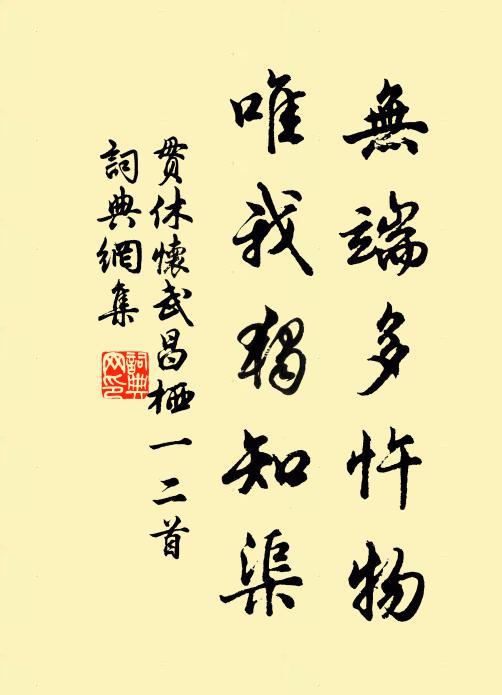 無端多忤物
唯我獨知渠
貫休懷武昌栖一二首
詞典網集
詞典網印